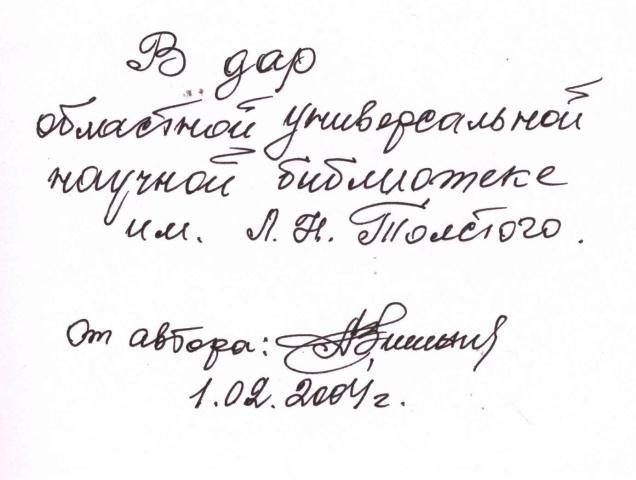 В дар
областной универсальной
научной библиотеке
им. Л. Н. Толстого.
От автора:
1.02.2004г.